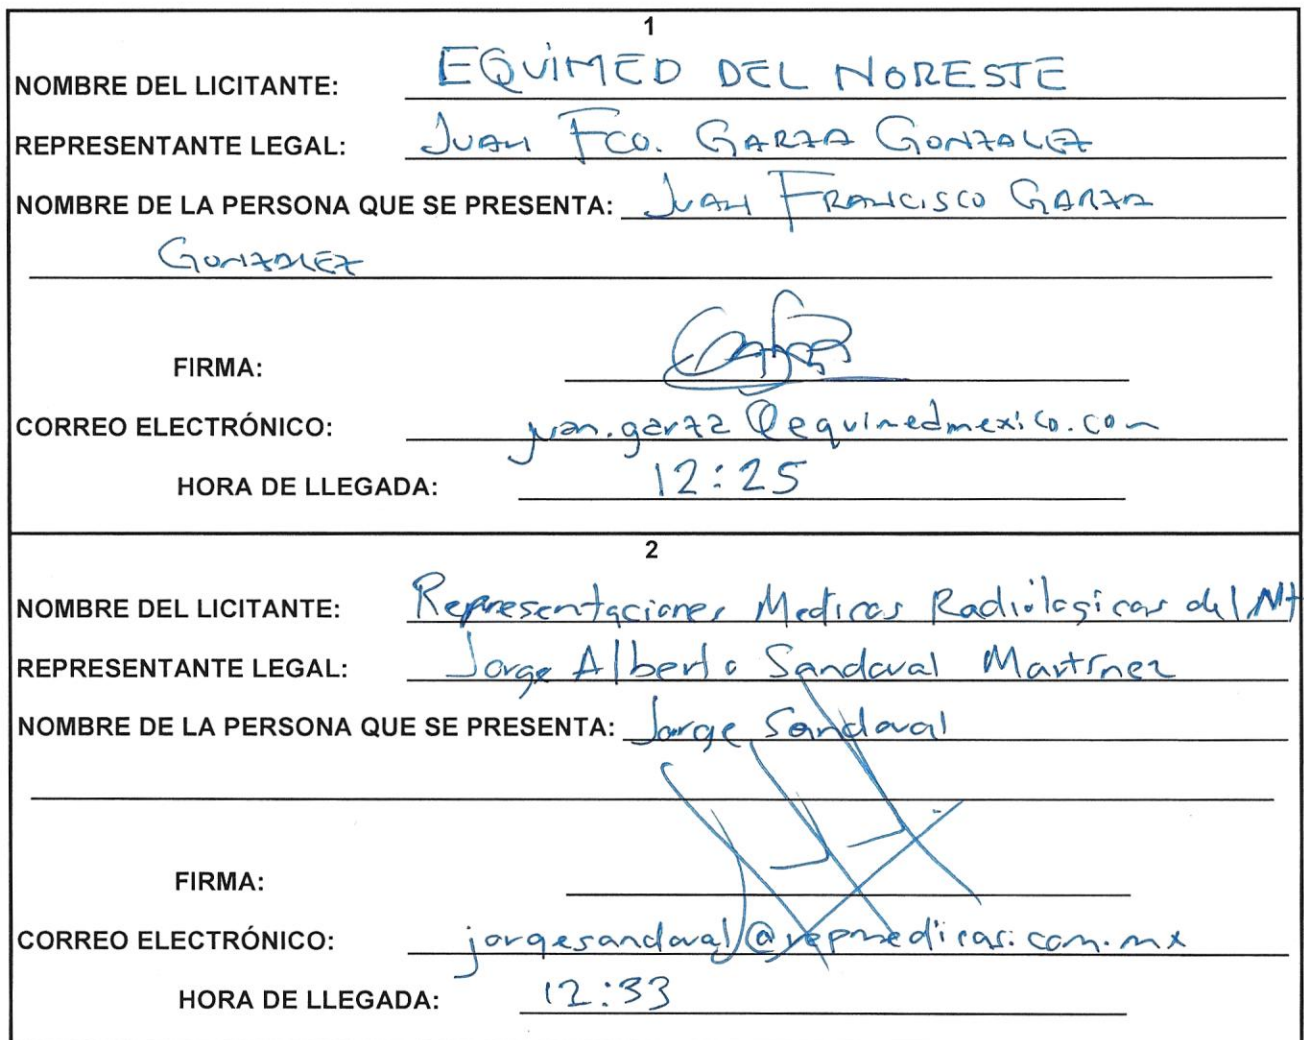 1
NOMBRE DEL LICITANTE: EQUIMED DEL NORESTE
REPRESENTANTE LEGAL: JUAN FCO. GARZA GONZALEZ
NOMBRE DE LA PERSONA QUE SE PRESENTA: JUAN FRANCISCO GARZA
GONZALEZ
FIRMA:
CORREO ELECTRÓNICO: juan.garza@equimedmexico.com
HORA DE LLEGADA: 12:25
2
NOMBRE DEL LICITANTE: Representaciones Medicas Radiologicas del
REPRESENTANTE LEGAL: Jorge Alberto Sandoval Martínez
NOMBRE DE LA PERSONA QUE SE PRESENTA: Jorge Sandoval
FIRMA:
CORREO ELECTRÓNICO: jorgesandoval@repmedicas.com.mx
HORA DE LLEGADA: 12:33